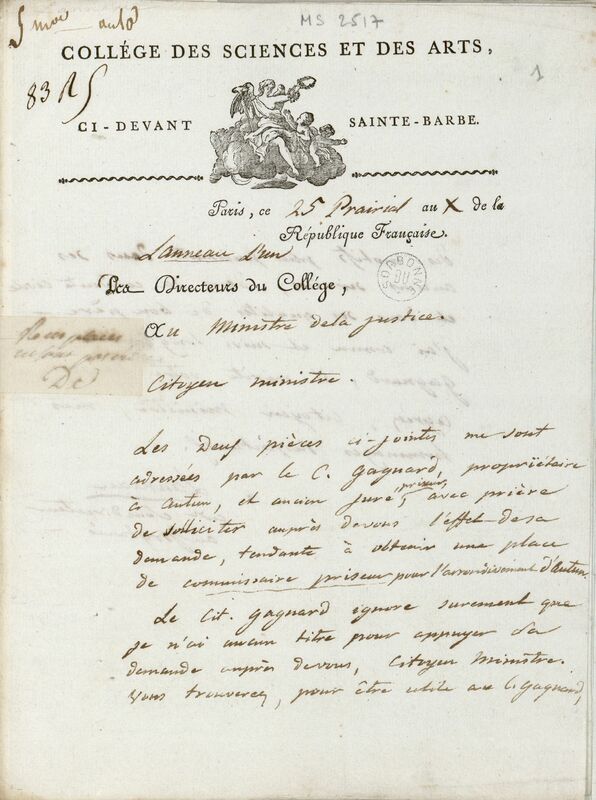 MS 2517
5 moe
1
COLLÉGE DES SCIENCES ET DES ARTS,
83 R 5
CI-DEVANT SAINTE-BARBE.
Paris, ce 25 Prairial an X de la
République Française.
Lanneau l'un
Les Directeurs du Collége,
SORBONNE
BU
Au Ministre de la justice.
De
Citoyen ministre.
Les Deux pièces ci-jointes me sont
adressées par le C. Gagnard, propriétaire
à autun, et ancien juré priseur, avec prière
de solliciter auprès devous l'effet desa
demande, tendante à obtenir une place
de commissaire priseur pour l'arrondissement d'Autun.
Le Cit. Gagnard ignore surement que
je n'ai aucun titre pour appuyer sa
demande auprès devous, Citoyen Ministre.
Vous trouverez, pour être utile au C. Gagnard,